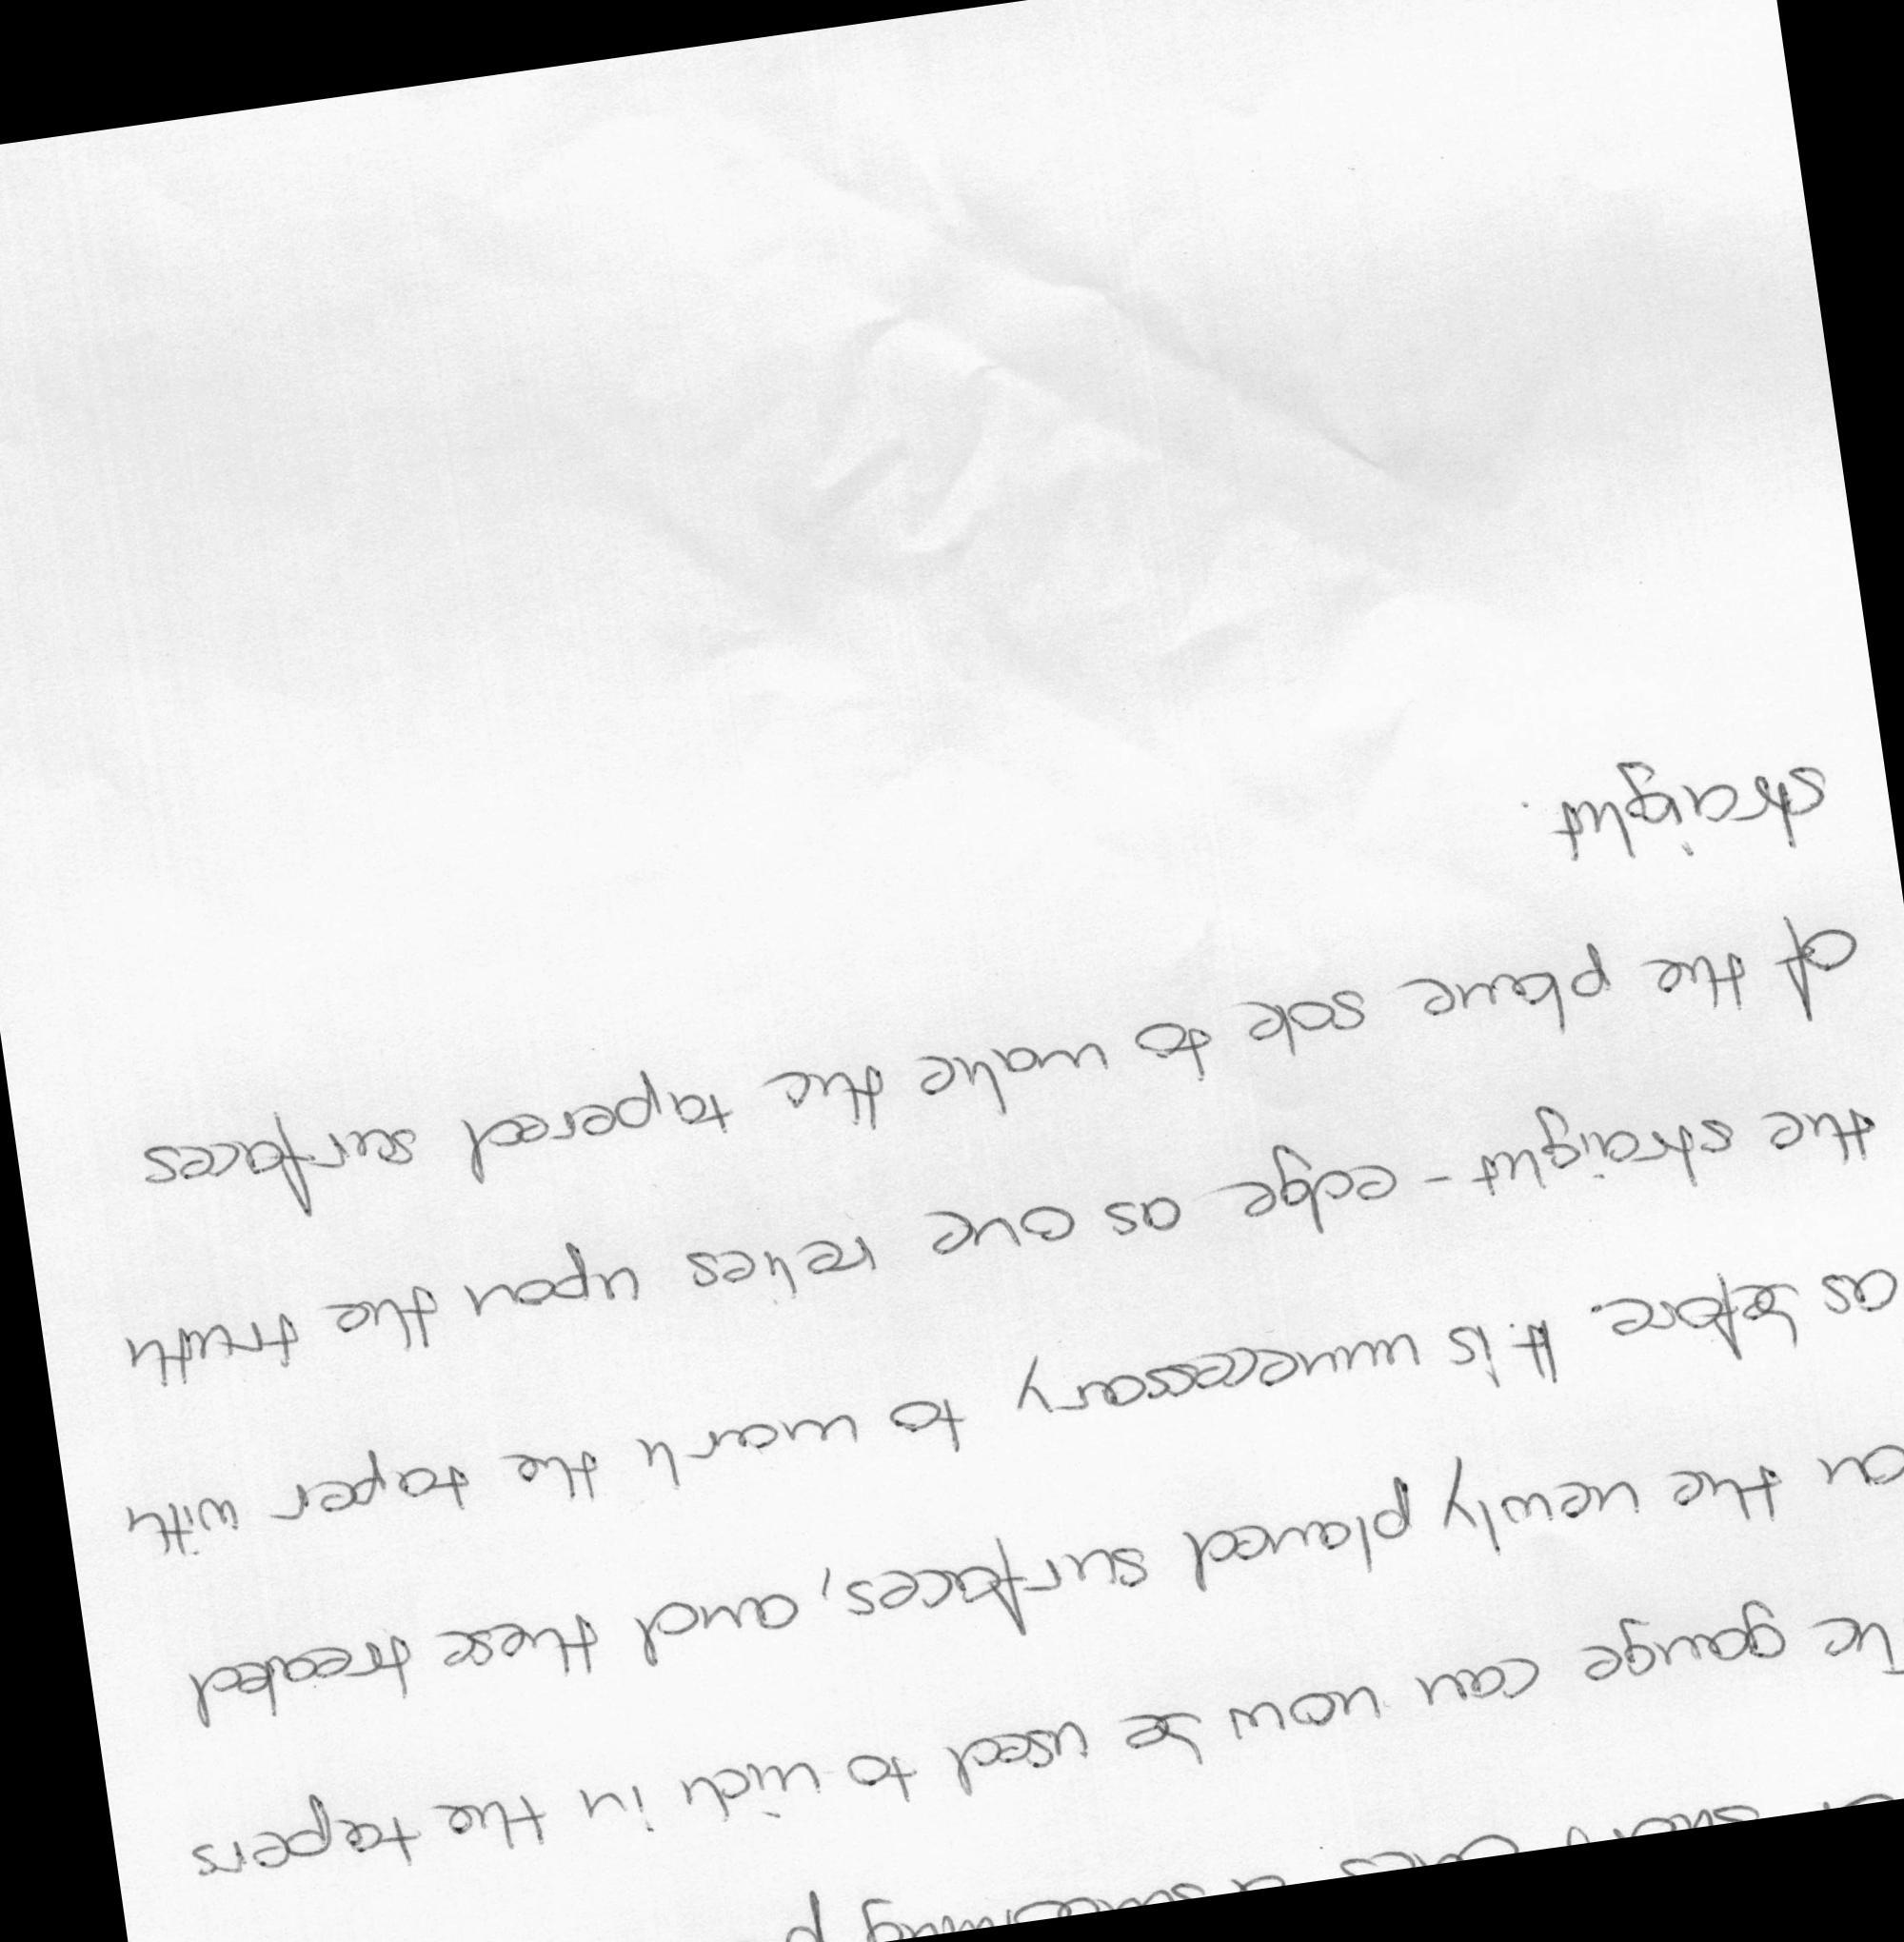 The gauge can now be used to nick in the tapers
on the newly planed surfaces, and these treated
as before. It is unnecessary to mark the taper with
the straight-edge as one relies upon the truth
of the plane sole to make the tapered surfaces
straight.